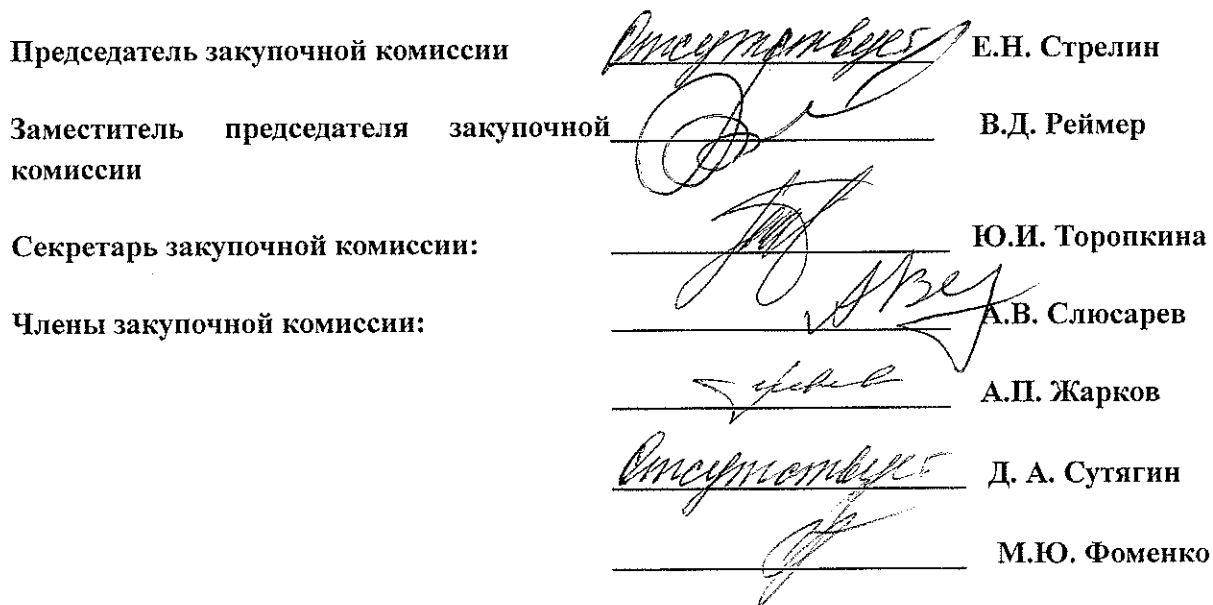 Председатель закупочной комиссии Отсутствует Е.Н. Стрелин
Заместитель председателя закупочной В.Д. Реймер
комиссии
Секретарь закупочной комиссии: Ю.И. Торопкина
Члены закупочной комиссии: А.В. Слюсарев
А.П. Жарков
Отсутствует Д. А. Сутягин
М.Ю. Фоменко